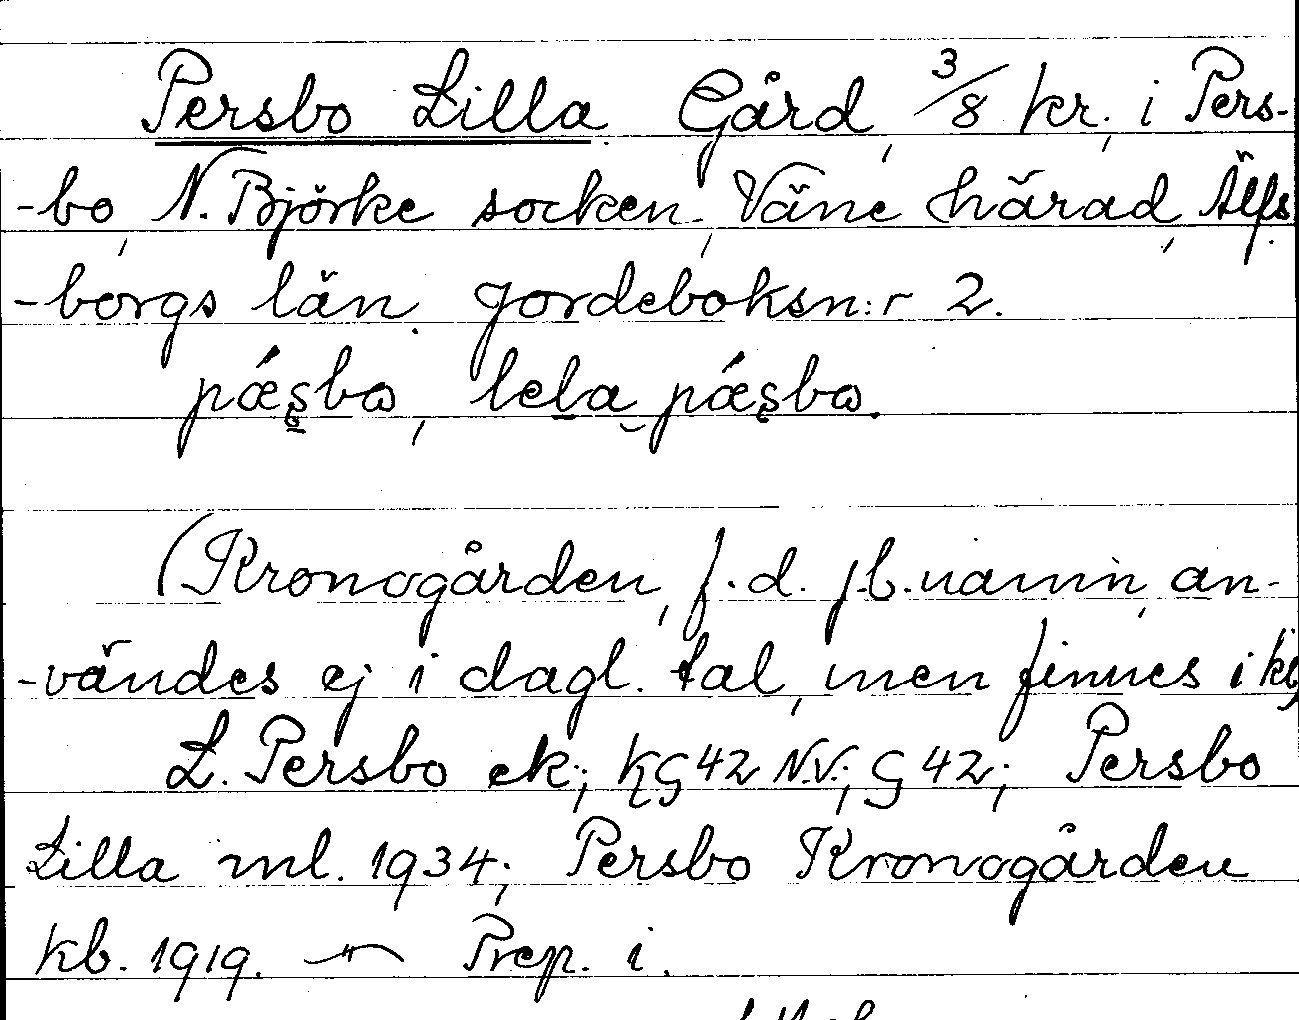 Persbo Lilla. Gård, 3/8 kr., i Pers-
-bo, N. Björke socken, Väne härad, Älfs
-borgs län. Jordeboksn:r 2.
pǽʂbω, lela pǽʂbω.
(Kronogården, f.d. jb.namn, an-
-vändes ej i dagl. tal, men finnes i kb)
L. Persbo ek; KG 42 N.V.; G 42; Persbo
Lilla ml. 1934; Persbo Kronogården
kb. 1919. — " — Prep. i.